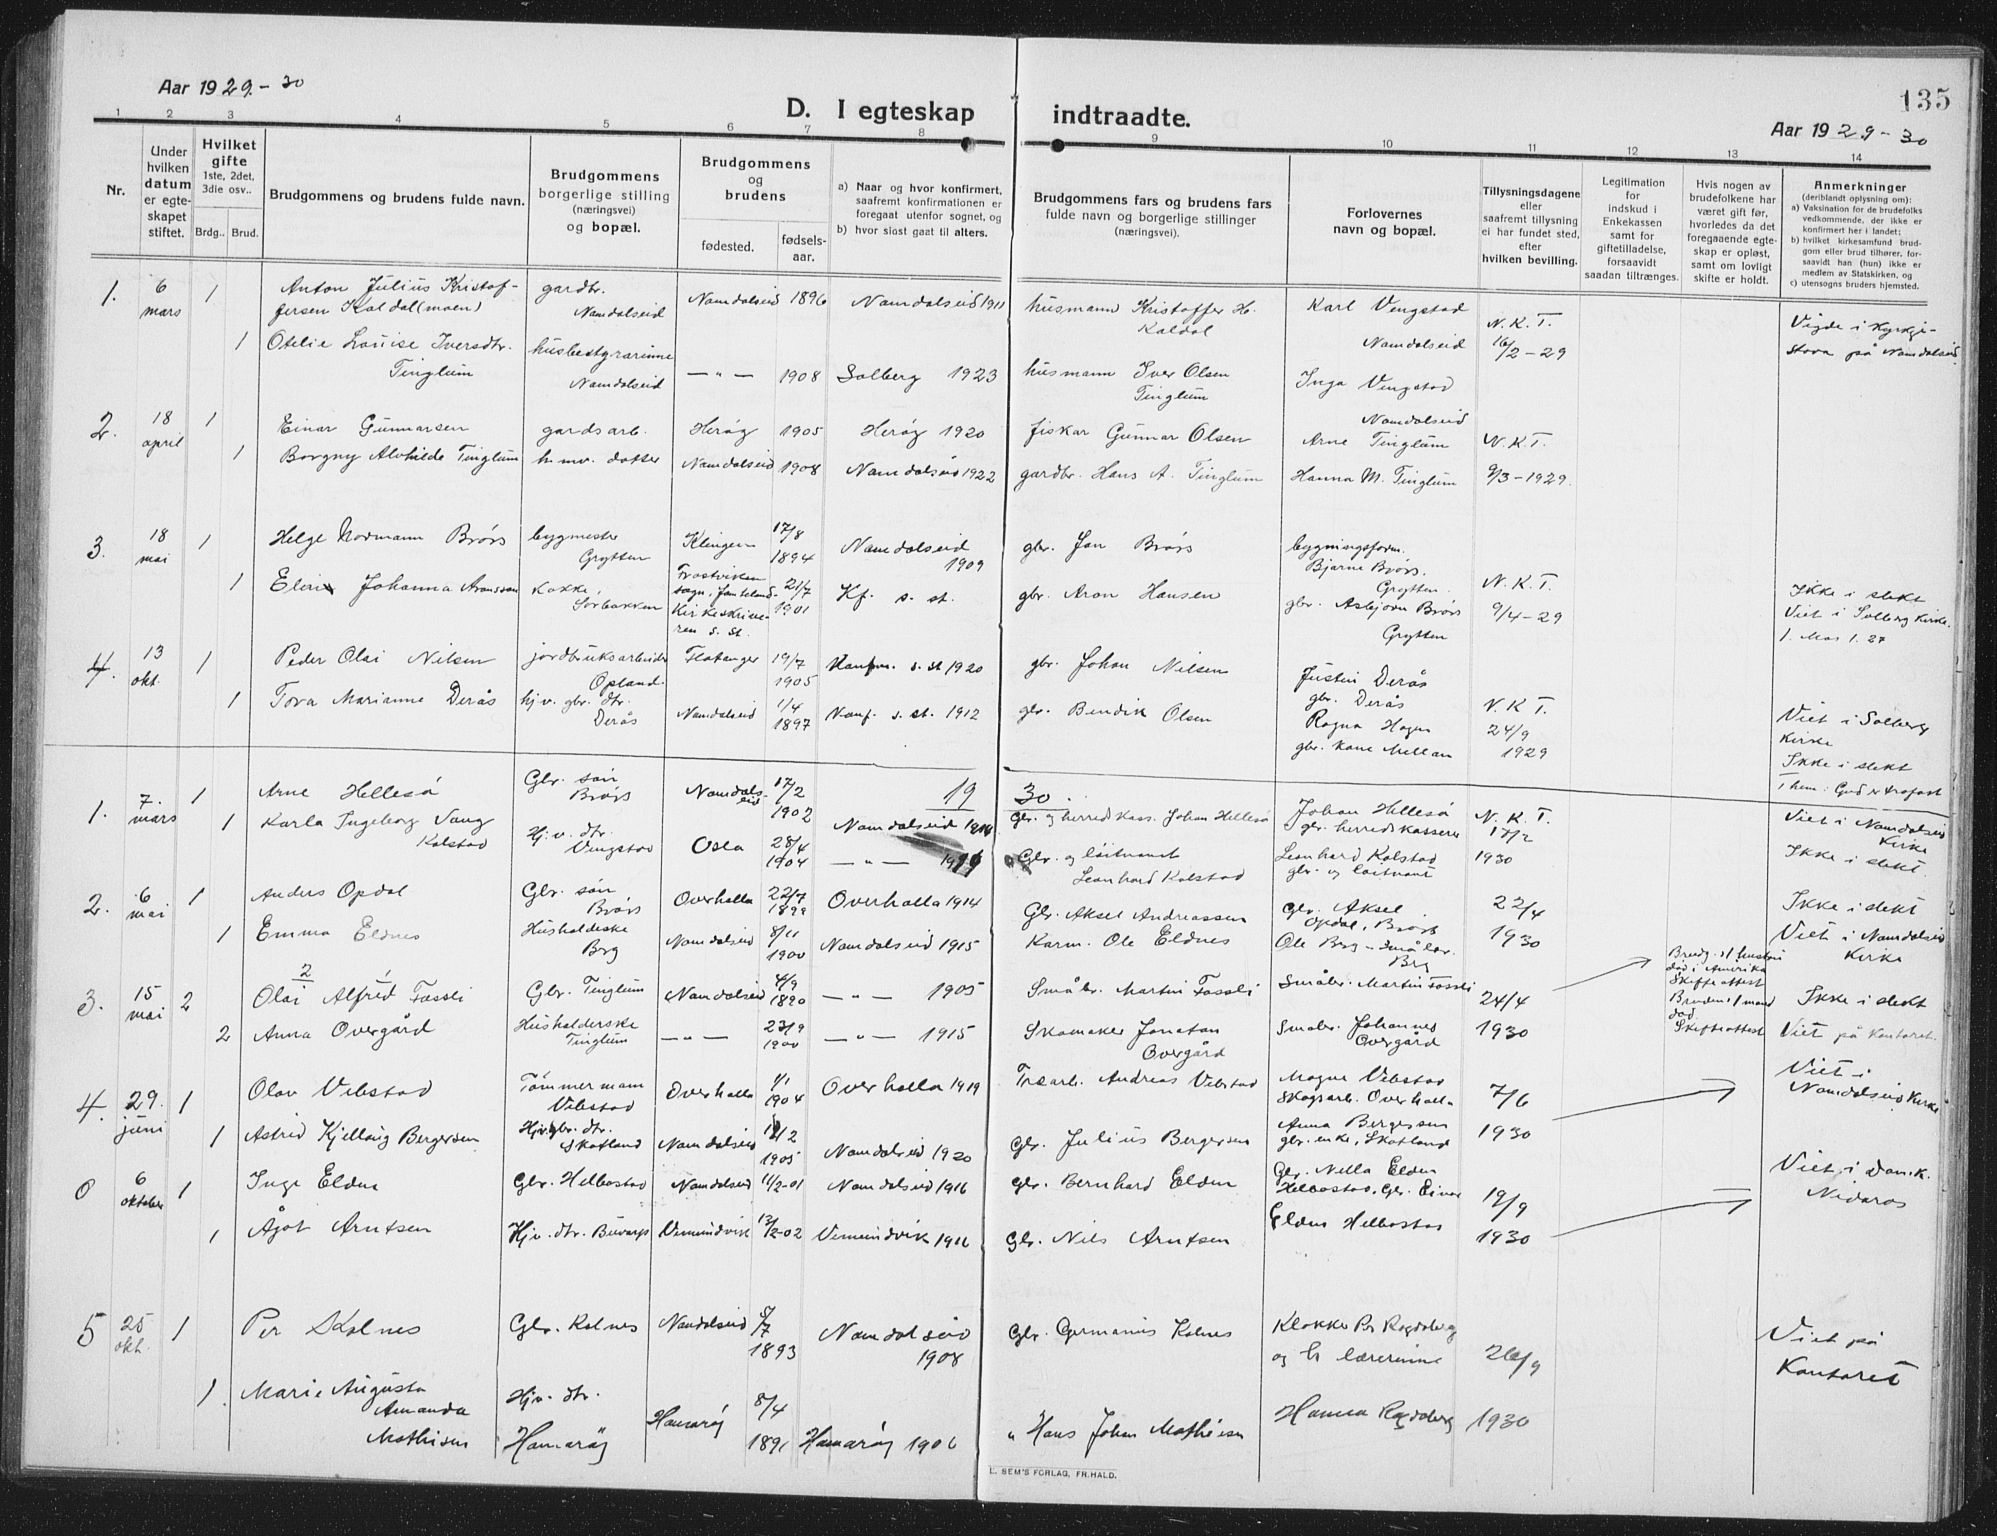 Aar 1929.-30
D. I egteskap indtraadte.
135
Aar 1929-30
1 2 3 4 5 6 7 8 9 10 11 12 13 14
Nr.
Under hvilken datum er egteskapet stiftet.
Hvilket gifte
1ste, 2det, 3die osv..
Brdg.. Brud.
Brudgommens og brudens fulde navn.
Brudgommens borgerlige stilling (næringsvei) og bopæl.
Brudgommens og brudens
fødested. fødselsaar.
a) Naar og hvor konfirmert, saafremt konfirmationen er foregaat utenfor sognet, og
b) hvor sidst gaat til alters.
Brudgommens fars og brudens fars fulde navn og borgerlige stillinger (næringsvei).
Forlovernes navn og bopæl.
Tillysningsdagene eller saafremt tillysning ei har fundet sted, efter hvilken bevilling.
Legitimation for indskud i Enkekassen samt for giftetilladelse, forsaavidt saadan tiltrænges.
Hvis nogen av brudefolkene har været gift før, hvorledes da det foregaaende egteskap er opløst, samt om lovligt skifte er holdt.
Anmerkninger
(deriblandt oplysning om):
a) Vaksination for de brudefolks vedkommende, der ikke er konfirmert her i landet;
b) hvilket kirkesamfund brudgom eller brud tilhører, forsaavidt han (hun) ikke er medlem av Statskirken, og
c) utensogns bruders hjemsted.
1. 6 mars 1 Anton Julius Kristoffersen Kaldal (moen) gardbr. Namdalseid Namdalseid 1896 Namdalseid 1911 husmann Kristoffer H. Kaldal Karl Vengstad Namdalseid N.K.T. 16/2-29 Vigde i Kyrkjestova på Namdalseid
1 Otelie Louise Iversdtr. Tinglum husbestyrarinne Namdalseid —"— 1908 Solberg 1923 husmann Iver Olsen Tinglum Inga Vengstad Namdalseid
2. 18 april 1 Einar Gunnarsen gardsarb. Herøy 1905 Herøy 1920 fiskar Gunnar Olsen Arne Tinglum N.K.T.
1 Borgny Alvhilde Tinglum h.mv. dotter Namdalseid 1908 Namdalseid 1922 gardbr. Hans A. Tinglum Hanna M. Tinglum 9/3-1929.
3. 18 mai 1 Helge Normann Brørs bygmester Grytten Klingen 17/8 1894 Namdalseid 1909 gbr. Jan Brørs bygningsform. Bjarne Brørs. Grytten N.K.T.
1 Johanna Aronsson Kokke, Sörbakken Frostviken sogn, Jämtland 21/7 1901 Kf. s. st. gbr. Aron Hansen gbr. Asbjørn Brørs Grytten 9/4-29 Ikke i slekt
Viet i Solberg Kirke.
4. 13 okt. 1 Peder Olai Nilsen jordbruksarbeider Opland Flatanger 19/7 1905 Konf. s. st 1920 gbr. Johan Nilsen Justin Derås gbr. Derås N.K.T.
1 Tora Marianne Derås hjv. gbr. dtr. Derås Namdalseid 1/4 1897 Konf. s. st. 1912 gbr. Bendik Olsen Ragna Hagen 24/9 1929 Viet i Solberg Kirke
Ikke i slekt
19 30.
1. 7. mars 1 Arne Hellesø Gbr. søn Brørs Namdalseid 17/2 1902 Namdalseid Gbr. og herredskass. Johan Hellesø Johan Hellesø gbr. herredskasserer N.K.T. 17/2 Viet i Namdalseid Kirke
1 Karla Ingeborg Vang Kolstad Hjv. dtr. Vengstad Oslo 28/4 1904 —"— Gbr. og löitnant Leonhard Kolstad Leonhard Kolstad gbr. og löitnant 1930 Ikke i slekt.
2. 6 mai 1 Anders Opdal Gbr. søn Brørs Overhalla 22/7 Overhalla 1914 Gbr. Aksel Andreassen Gbr. Aksel Opdal, Brørs 22/4 Ikke i slekt
1 Emma Eldnes Husholderske Brg Namdalseid 8/11 1900 Namdalseid 1915 Karm. Ole Eldnes Ole Brg – småbr. Brg 1930 Viet i Namdalseid Kirke
3. 15 mai 2 Olai Alfred Fossli Gbr. Tinglum Namdalseid 4/9 1890 —"— 1905 Småbr. Martin Fossli Småbr. Martin Fossli 24/4 Brudg. 1/ hustru död i Amerika Skifteattest Ikke i slekt
2 Anna Overgård Husholderske Tinglum —"— 23/9 1900 —"— 1915 Skomaker Jonatan Overgård Småbr. Johannes Overgård 1930 Bruden 1/ mand död. Skifteattest Viet på Kontoret.
4. 29. juni 1 Olav Vibstad Tømmermann Vibstad Overhalla 1/1 1904 Overhalla 1919 Træarb. Andreas Vibstad Magne Vibstad Skogsarb. Overhalla 7/6 Viet i Namdalseid Kirke
1 Astrid Kjellaug Bergersen Hjv. gbr. dtr. Skotland Namdalseid 1905 Namdalseid 1920 Gbr. Julius Bergersen Anna Bergersen gbr. enke, Skotland 1930
0 6 oktober 1 Inge Elden Gbr. Helbostad Namdalseid 11/2-01 Namdalseid 1916 Gbr. Bernhard Elden Gbr. Nella Elden Helbostad, Gbr. Einar Elden Helbostad 19/9 Viet i Domk. Nidaros
1 Ågot Arntsen Hjv. dtr. Vemundvik 13/2-02 Vemundvik 1916 Gbr. Nils Arntsen 1930
5 25 okt. 1 Per Kolnes Gbr. Kolnes Namdalseid 8/7 1893 Namdalseid 1908 Gbr. Germanus Kolnes Klokker Per Ragdeberg og fr lærerinne 26/9 Viet på Kontoret
1 Marie Augusta Amanda Mathisen Hjv. dtr. Hamarøy Hamarøy 8/4 1891 Hamarøy 1906 " Hans Johan Mathisen Hanna 1930
E. SEM'S FORLAG, FR.HALD.